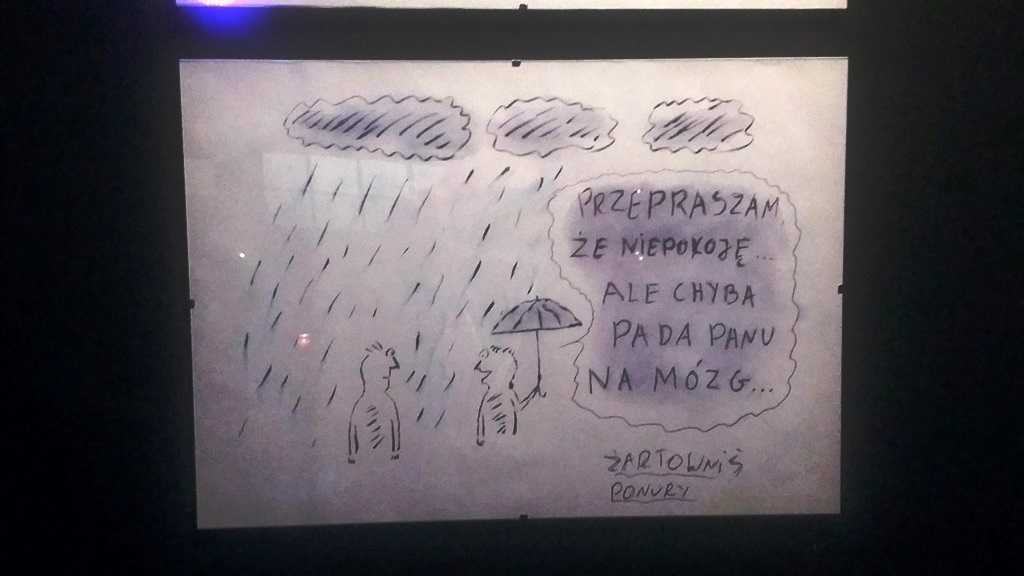 PRZEPRASZAM
ŻE NIEPOKOJĘ...
ALE CHYBA
PADA PANU
NA MÓZG...
ŻARTOWNIŚ
PONURY